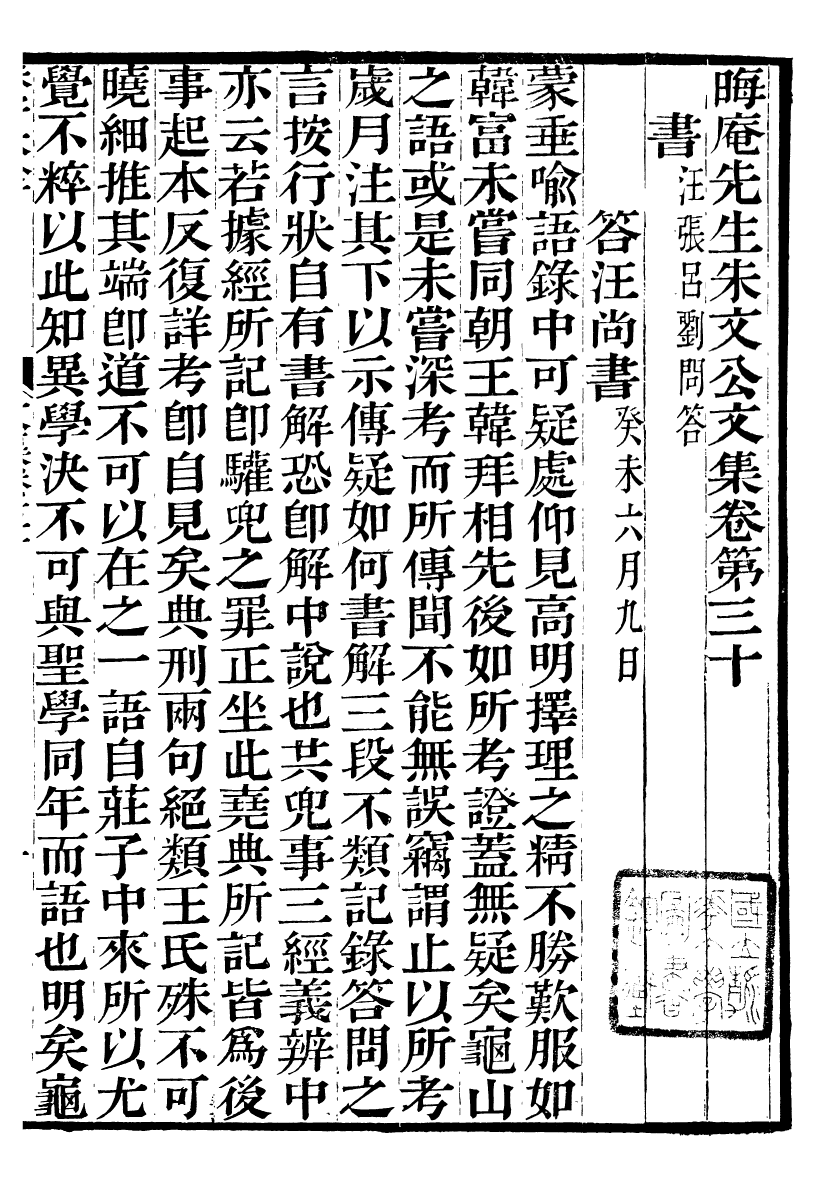 晦庵先生朱文公文集卷第三十
書汪張呂劉問答
答汪尚書癸未六月九日
蒙垂喻語錄中可疑處仰見高明擇理之精不勝歎服如
韓富未嘗同朝王韓拜相先後如所考證蓋無疑矣龜山
之語或是未嘗深考而所傳聞不能無誤竊謂止以所考
歲月注其下以示傳疑如何書解三段不類記錄答問之
言按行狀自有書解恐卽解中說也共兜事三經義辨中
亦云若據經所記卽驩兜之罪正坐此堯典所記皆爲後
事起本反復詳考卽自見矣典刑兩句絕類王氏殊不可
曉細推其端卽道不可以在之一語自莊子中來所以尤
覺不粹以此知異學決不可與聖學同年而語也明矣龜